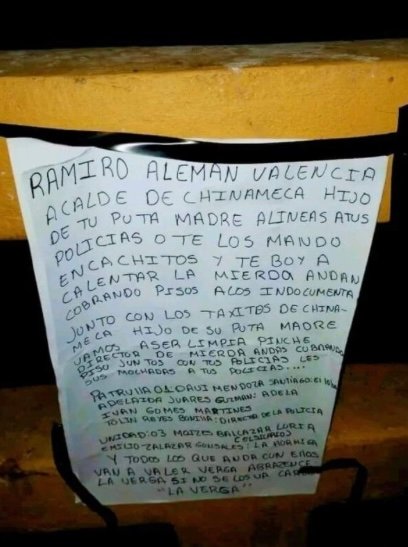 RAMIRO ALEMAN VALENCIA
ACALDE DE CHINAMECA HIJO
DE TU PUTA MADRE ALINEAS ATUS
POLICIAS O TE LOS MANDO
ENCACHITOS Y TE BOY A
CALENTAR LA MIERDA ANDAN
COBRANDO PISOS ALOS INDOCUMENTA
JUNTO CON LOS TAXITOS DE CHINA-
MECA HIJO DE SU PUTA MADRE
VAMOS ASER LIMPIA PINCHE
DIRECTOR DE MIERDA ANDAS CUBRANDO
PISO JUNTOS CON TUS POLICIAS LES
SUS MOCHADAS A TUS POLICIAS....
PATRULLA 01: DAVI MENDOZA SANTIAGO: El
ADELAIDA JUARES GUZMAN: ADELA
IVAN GOMES MARTINES
REYES BONILLA: DIRECTOR DE LA POLICIA
UNIDAD: 03 MOIZES BALTAZAR LURIA
EMILIO ZALAZAR GONSALES: LA HORMIGA
Y TODOS LOS QUE ANDA CUN EÑOS
VAN A VALER VERGA ABRAZENCE
LA VERGA SI NO SE LOS VA
"LA VERGA"